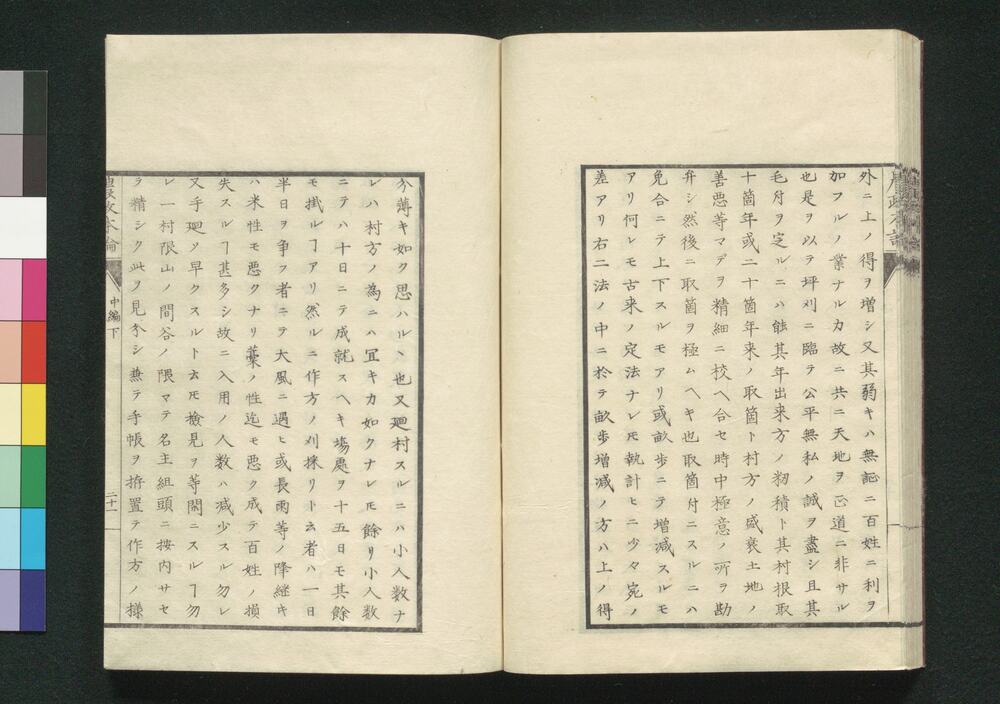 外ニ上ノ得ヲ増シ又其弱キハ無証ニ百姓ニ利ヲ
加フルノ業ナルカ故ニ共ニ天地ヲ正道ニ非サル
也是ヲ以テ坪刈ニ臨テ公平無私ノ誠ヲ盡シ且其
毛付ヲ定ルニハ能其年出来方ノ籾積ト其村根取
十箇年或二十箇年来ノ取箇ト村方ノ盛衰土地ノ
善悪等マデヲ精細ニ校ヘ合セ時中極意ノ所ヲ勘
弁シ然後ニ取箇ヲ極ムヘキ也取箇付ニスルニハ
免合ニテ上下スルモアリ或畝歩ニテ増減スルモ
アリ何レモ古来ノ定法ナレ𪜈執計ヒニ少々宛ノ
差アリ右二法ノ中ニ於テ畝歩増減ノ方ハ上ノ得
分薄キ如ク思ハルヽ也又廻村スルニハ小人数ナ
レハ村方ノ為ニハ宜キカ如クナレ𪜈餘リ小人数
ニテハ十日ニテ成就スヘキ場處ヲ十五日モ其餘
モ掛ルヿアリ然ルニ作方ノ刈採リト云者ハ一日
半日ヲ争フ者ニテ大風ニ遇ヒ或長雨等ノ降継キ
ハ米性モ悪クナリ藁ノ性迄モ悪ク成テ百姓ノ損
失スルヿ甚多シ故ニ入用ノ人数ハ減少スル勿レ
又手廻ノ早クスルト云𪜈検見ヲ等閑ニスルヿ勿
レ一村限山ノ間谷ノ隈マテ名主組頭ニ按内サセ
ラ精シク此ヲ見分シ兼テ手帳ヲ拵置テ作方ノ様
農政本論
中編下
二十一